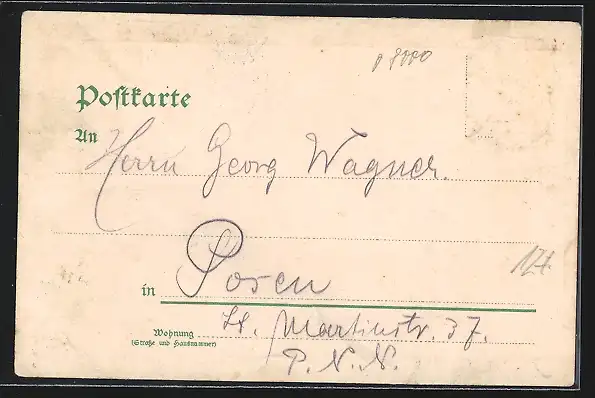 D 8000
Postkarte
An Herrn Georg Wagner.
in Posen
Wohnung St. Martinstr. 37.
(Straße und Hausnummer)
P. N. N.